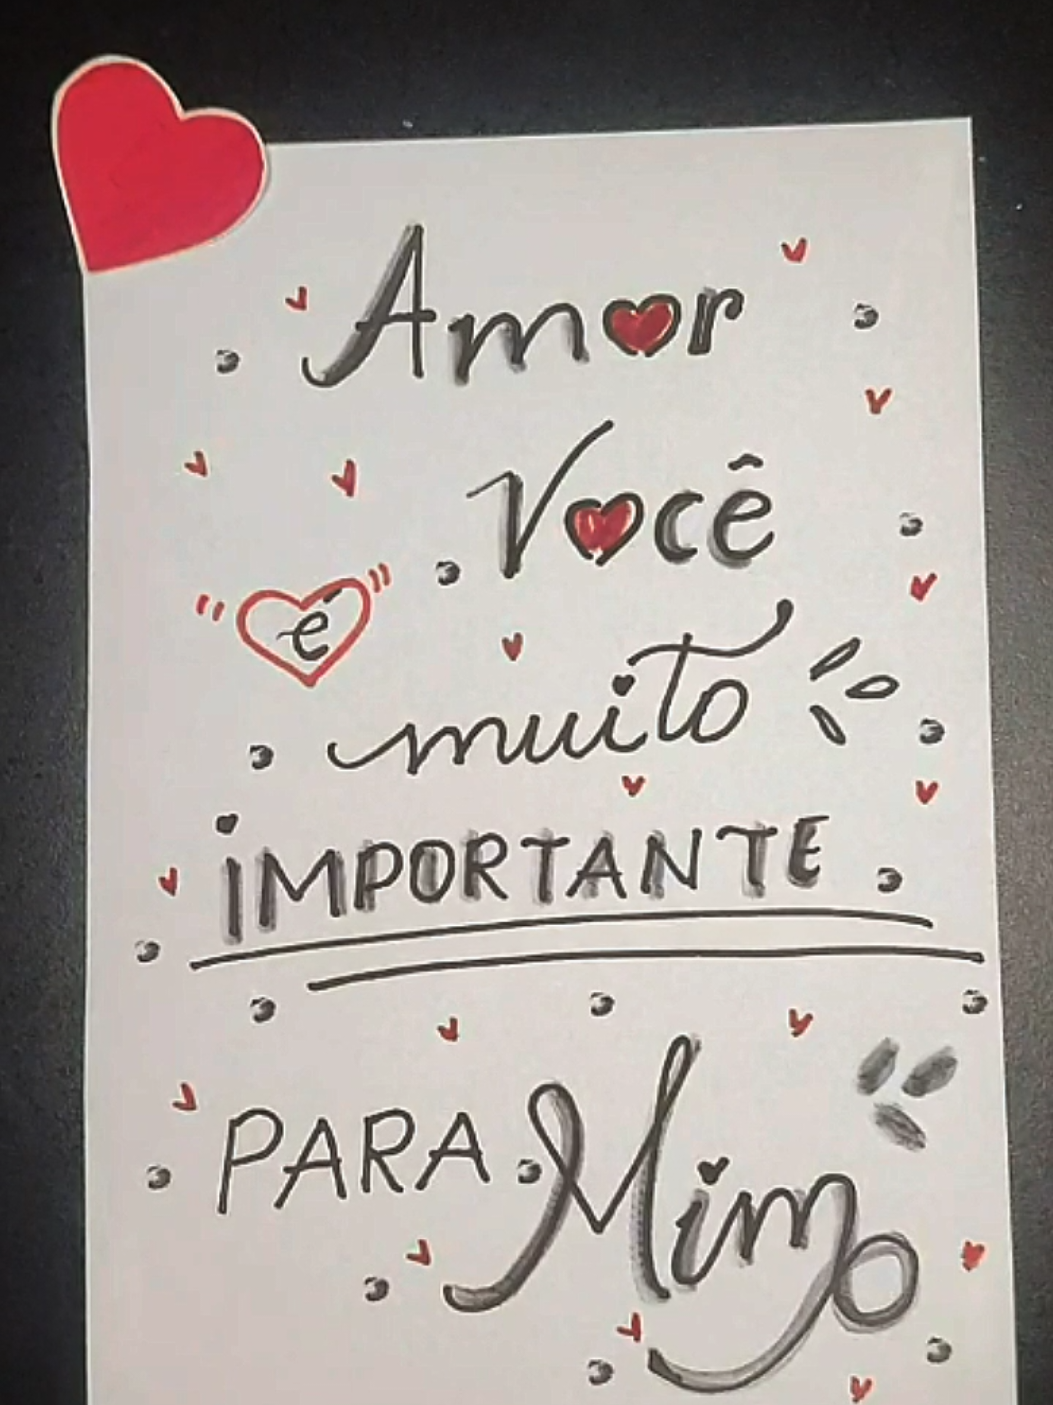 Amor
Você
é
muito
IMPORTANTE
PARA Mim